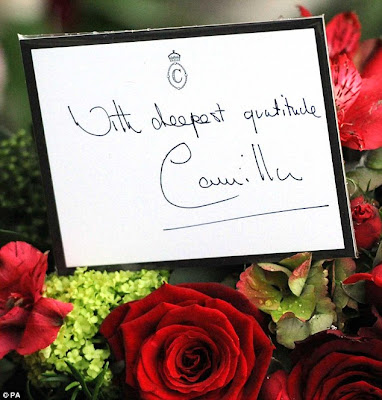 C
With deepest gratitude
Camilla
© PA